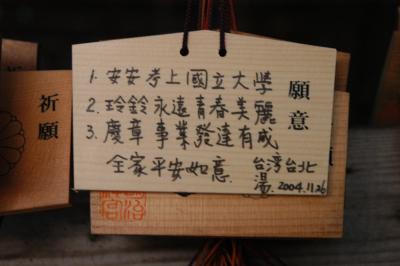 願意
1. 安安考上國立大學
2. 玲鈴永遠青春美麗
3. 慶章事業發達有成
全家平安如意. 台湾台北
湯. 2004.11.26
祈願